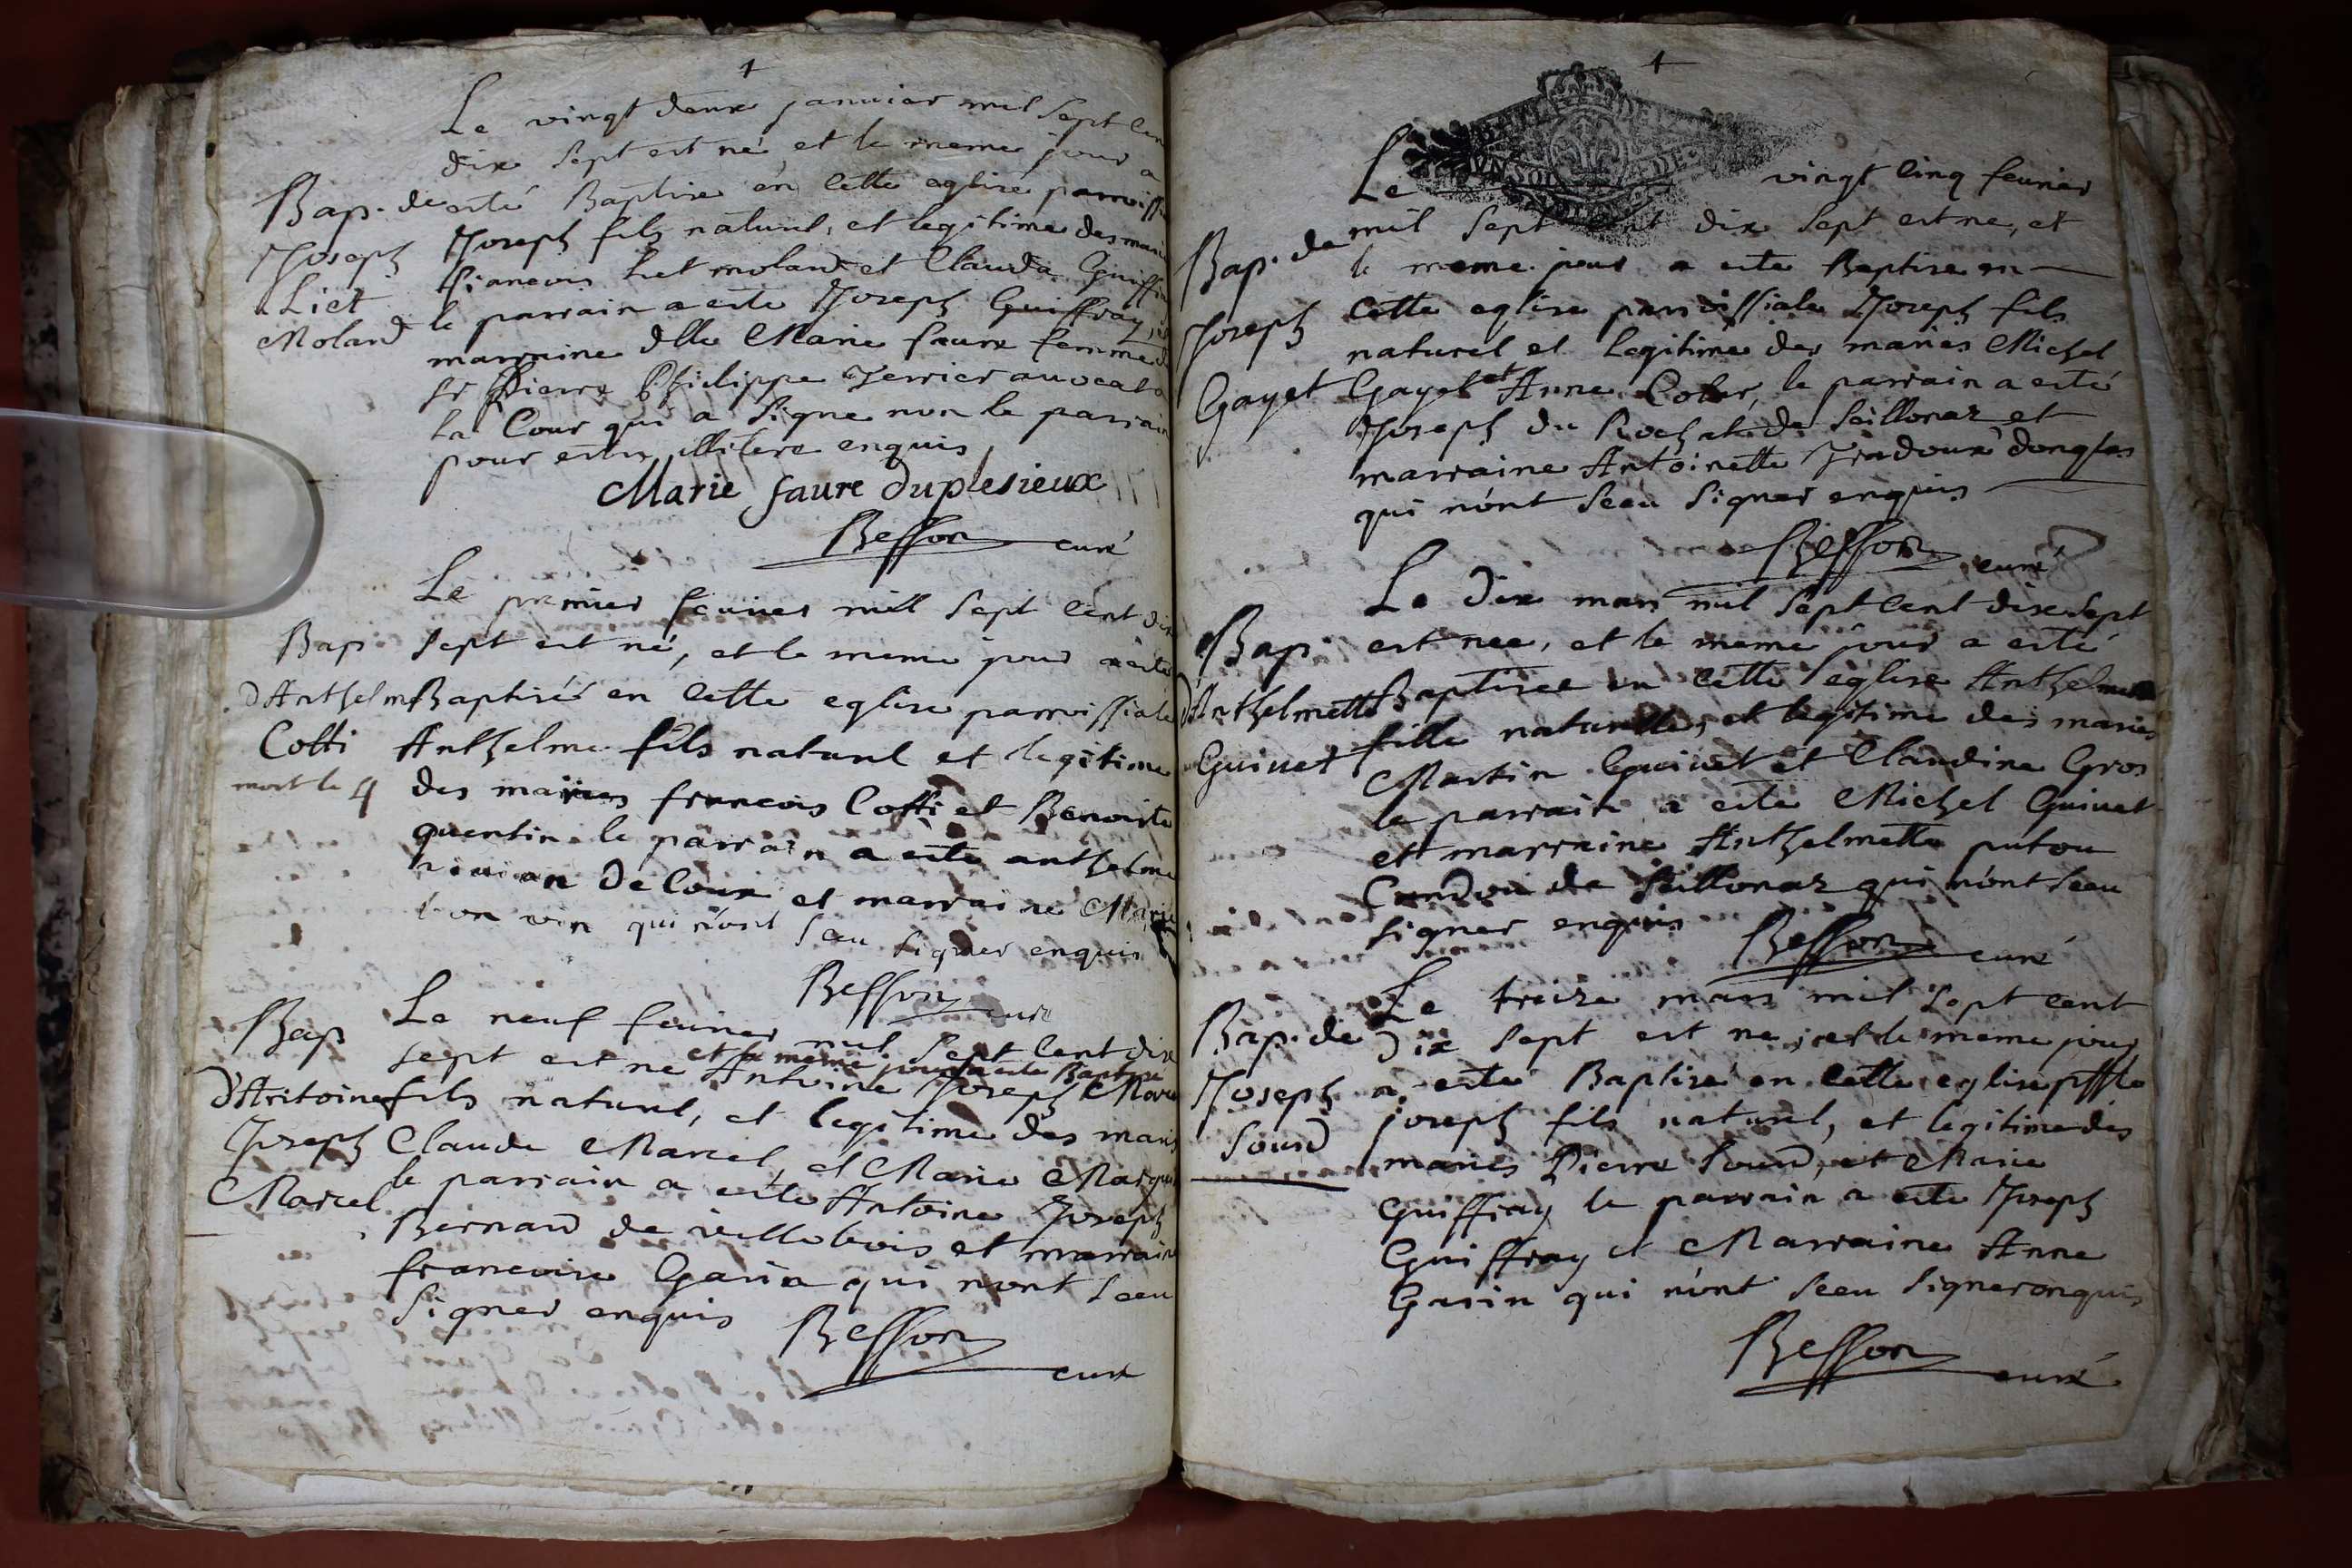 Le vingt deux januier mil sept cen
dix sept est né et le meme jour a
Bap. de esté Baptise en cette eglise parroissi
Joseph Joseph fils naturel, et legitime des marié
Liet francois Liet moland et Clauda Guiffra
Moland le parrain a esté Joseph Guiffray, et
marraine dlle Marie faure femme d
sr Pierre Philippe Terrier auocat a
la Cour qui a signe non le parrain
pour estre illitere enquis
Marie faure duplesieux
Besson curé
Le premier feurier mill sept cent dix
Bap. sept est né, et le meme jour a esté
d'Anthelm Baptisé en cette eglise parroissiale
Cotti Anthelme fils naturel et legitime
mort le 4 des mariés francois Cotti et Benoiste
quentin le parrain a esté anthelme
de Loux et marraine Marie
bon vin qui n'ont sceu signer enquis
Besson curé
Bap Le neuf feurier mil sept cent dix
sept est ne et le meme jour a esté Baptisé Antoine Joseph Marcel
d'Antoine fils naturel, et legitime des mariés
Joseph Claude Marcel, et Marie Marquis
Marcel le parrain a esté Antoine Joseph
Bernard de villebois et marraine
francoise Garin qui n'ont sceu
signer enquis
Besson
curé
Le vingt cinq feurier
Bap. de mil sept cent dix sept est ne, et
le meme jour a esté Baptise en
Joseph cette eglise parroissiale Joseph fils
naturel et legitime des mariés Michel
Gayet Gayet et Anne Coler, le parrain a esté
Joseph du Rochat de Seillonaz et
marraine Antoinette Tradoux donglas
qui n'ont sceu signer enquis
Besson curé
Le dix mars mil sept cent dix sept
Bap. est nee, et le meme jour a esté
d'Anthelmette Baptisee en cette eglise Anthelmette
Guinet fille naturelle, et legitime des mariés
Martin Guinet et Claudine Gros
le parrain a esté Michel Guinet
et marraine Anthelmette putou
de Seillonaz qui n'ont sceu
signer enquis
Besson curé
Le treize mars mil sept cent
Bap. de dix sept est ne, et le meme jour
Joseph a esté Baptisé en cette eglise pssle
Sourd joseph fils naturel, et legitime des
mariés Pierre Sourd, et Marie
Guiffray le parrain a esté Joseph
Guiffray et Marraine Anne
Garin qui n'ont sceu signer enquis
Besson
curé